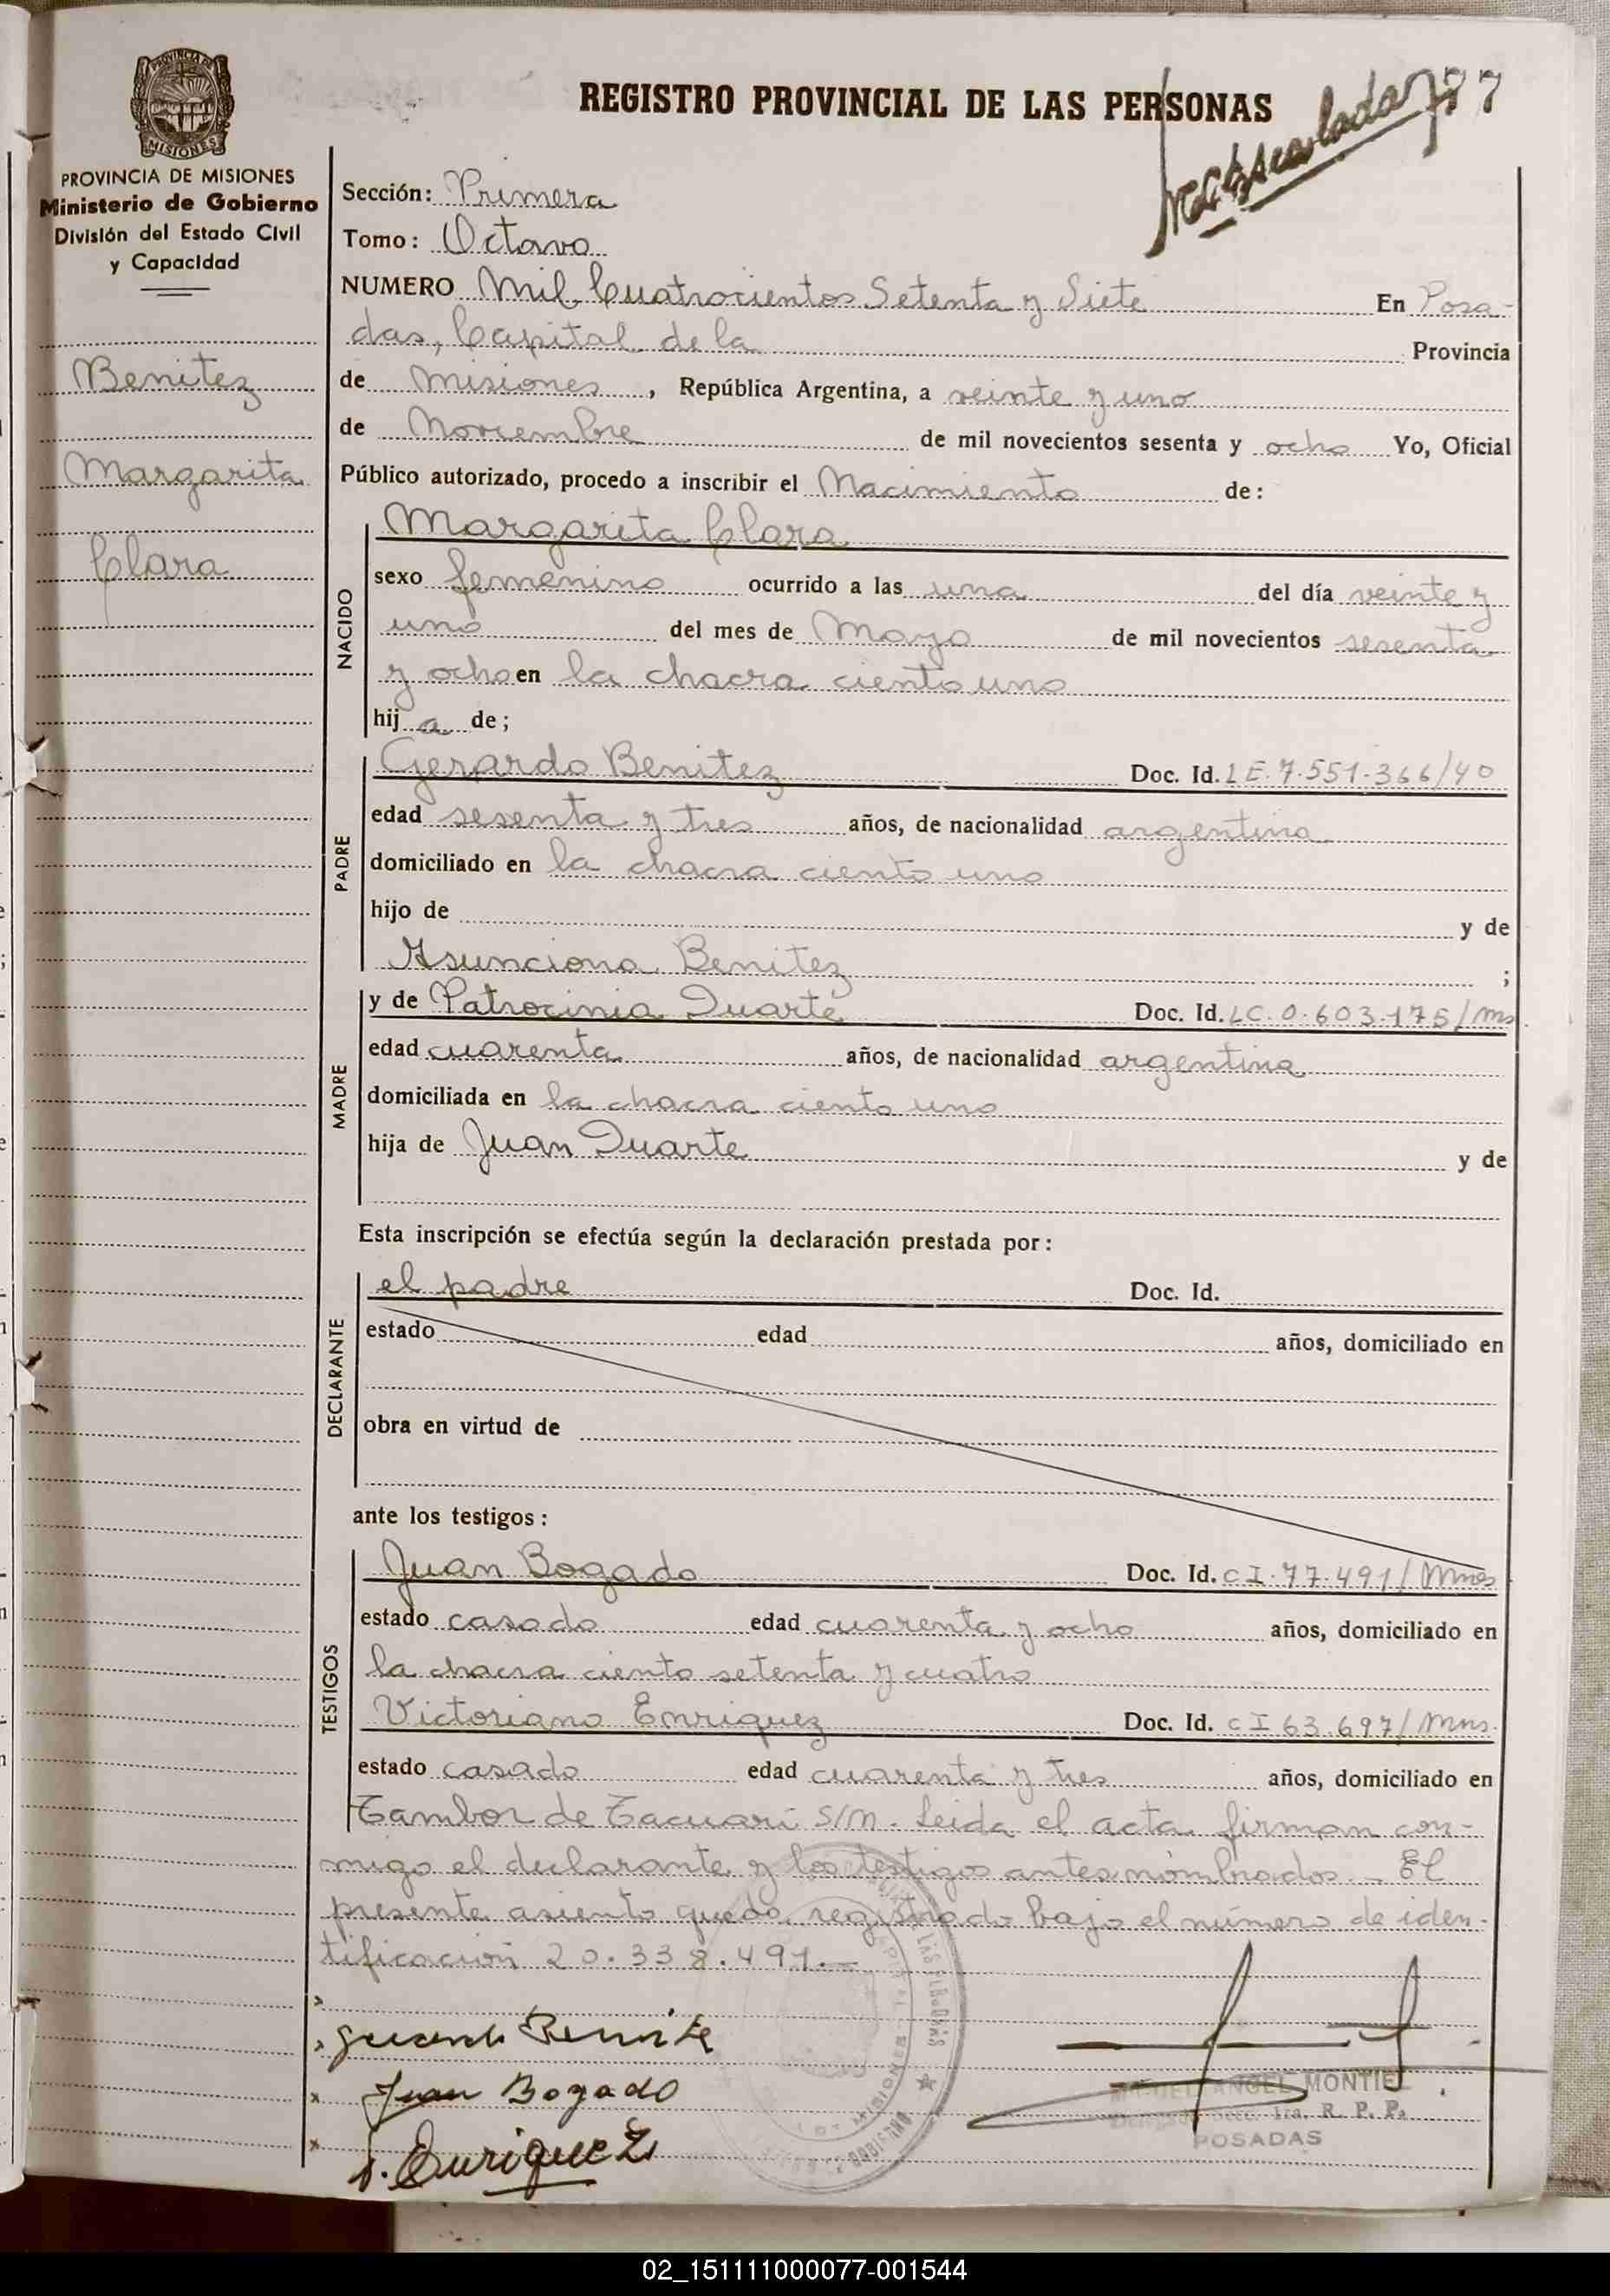 PROVINCIA DE
MISIONES
PROVINCIA DE MISIONES
Ministerio de Gobierno
División del Estado Civil
y Capacidad
Benitez
Margarita
Clara
REGISTRO PROVINCIAL DE LAS PERSONAS
77
Sección: Primera
Tomo: Octavo
NUMERO Mil Cuatrocientos Setenta y Siete En Posa-
das, Capital de la Provincia
de Misiones, República Argentina, a veinte y uno
de Noviembre de mil novecientos sesenta y ocho Yo, Oficial
Público autorizado, procedo a inscribir el Nacimiento de:
NACIDO
Margarita Clara
sexo femenino ocurrido a las una del día veinte y
uno del mes de Mayo de mil novecientos sesenta
y ocho en la chacra ciento uno
hija de;
PADRE
Gerardo Benitez Doc. Id. LE.7.551.366/40
edad sesenta y tres años, de nacionalidad argentina
domiciliado en la chacra ciento uno
hijo de y de
Asunciona Benitez ;
MADRE
y de Patrocinia Duarte Doc. Id. LC.0.603.175/ms
edad cuarenta años, de nacionalidad argentina
domiciliada en la chacra ciento uno
hija de Juan Duarte y de
Esta inscripción se efectúa según la declaración prestada por:
DECLARANTE
el padre Doc. Id.
estado edad años, domiciliado en
obra en virtud de
ante los testigos:
TESTIGOS
Juan Bogado Doc. Id. CI.77.491/Mnes
estado casado edad cuarenta y ocho años, domiciliado en
la chacra ciento setenta y cuatro
Victoriano Enriquez Doc. Id. CI 63.697/Mns.
estado casado edad cuarenta y tres años, domiciliado en
Tambor de Tacuarí S/N. Leida el acta firman con-
migo el declarante y los testigos antes nombrados. - El
presente asiento quedo registrado bajo el número de iden-
tificación 20.338.491.-
Gerardo Benitez
Juan Bogado
V. Enriquez
MIGUEL ANGEL MONTIEL
Delegado Secc. 1ra. R. P. P.
POSADAS
02_151111000077-001544